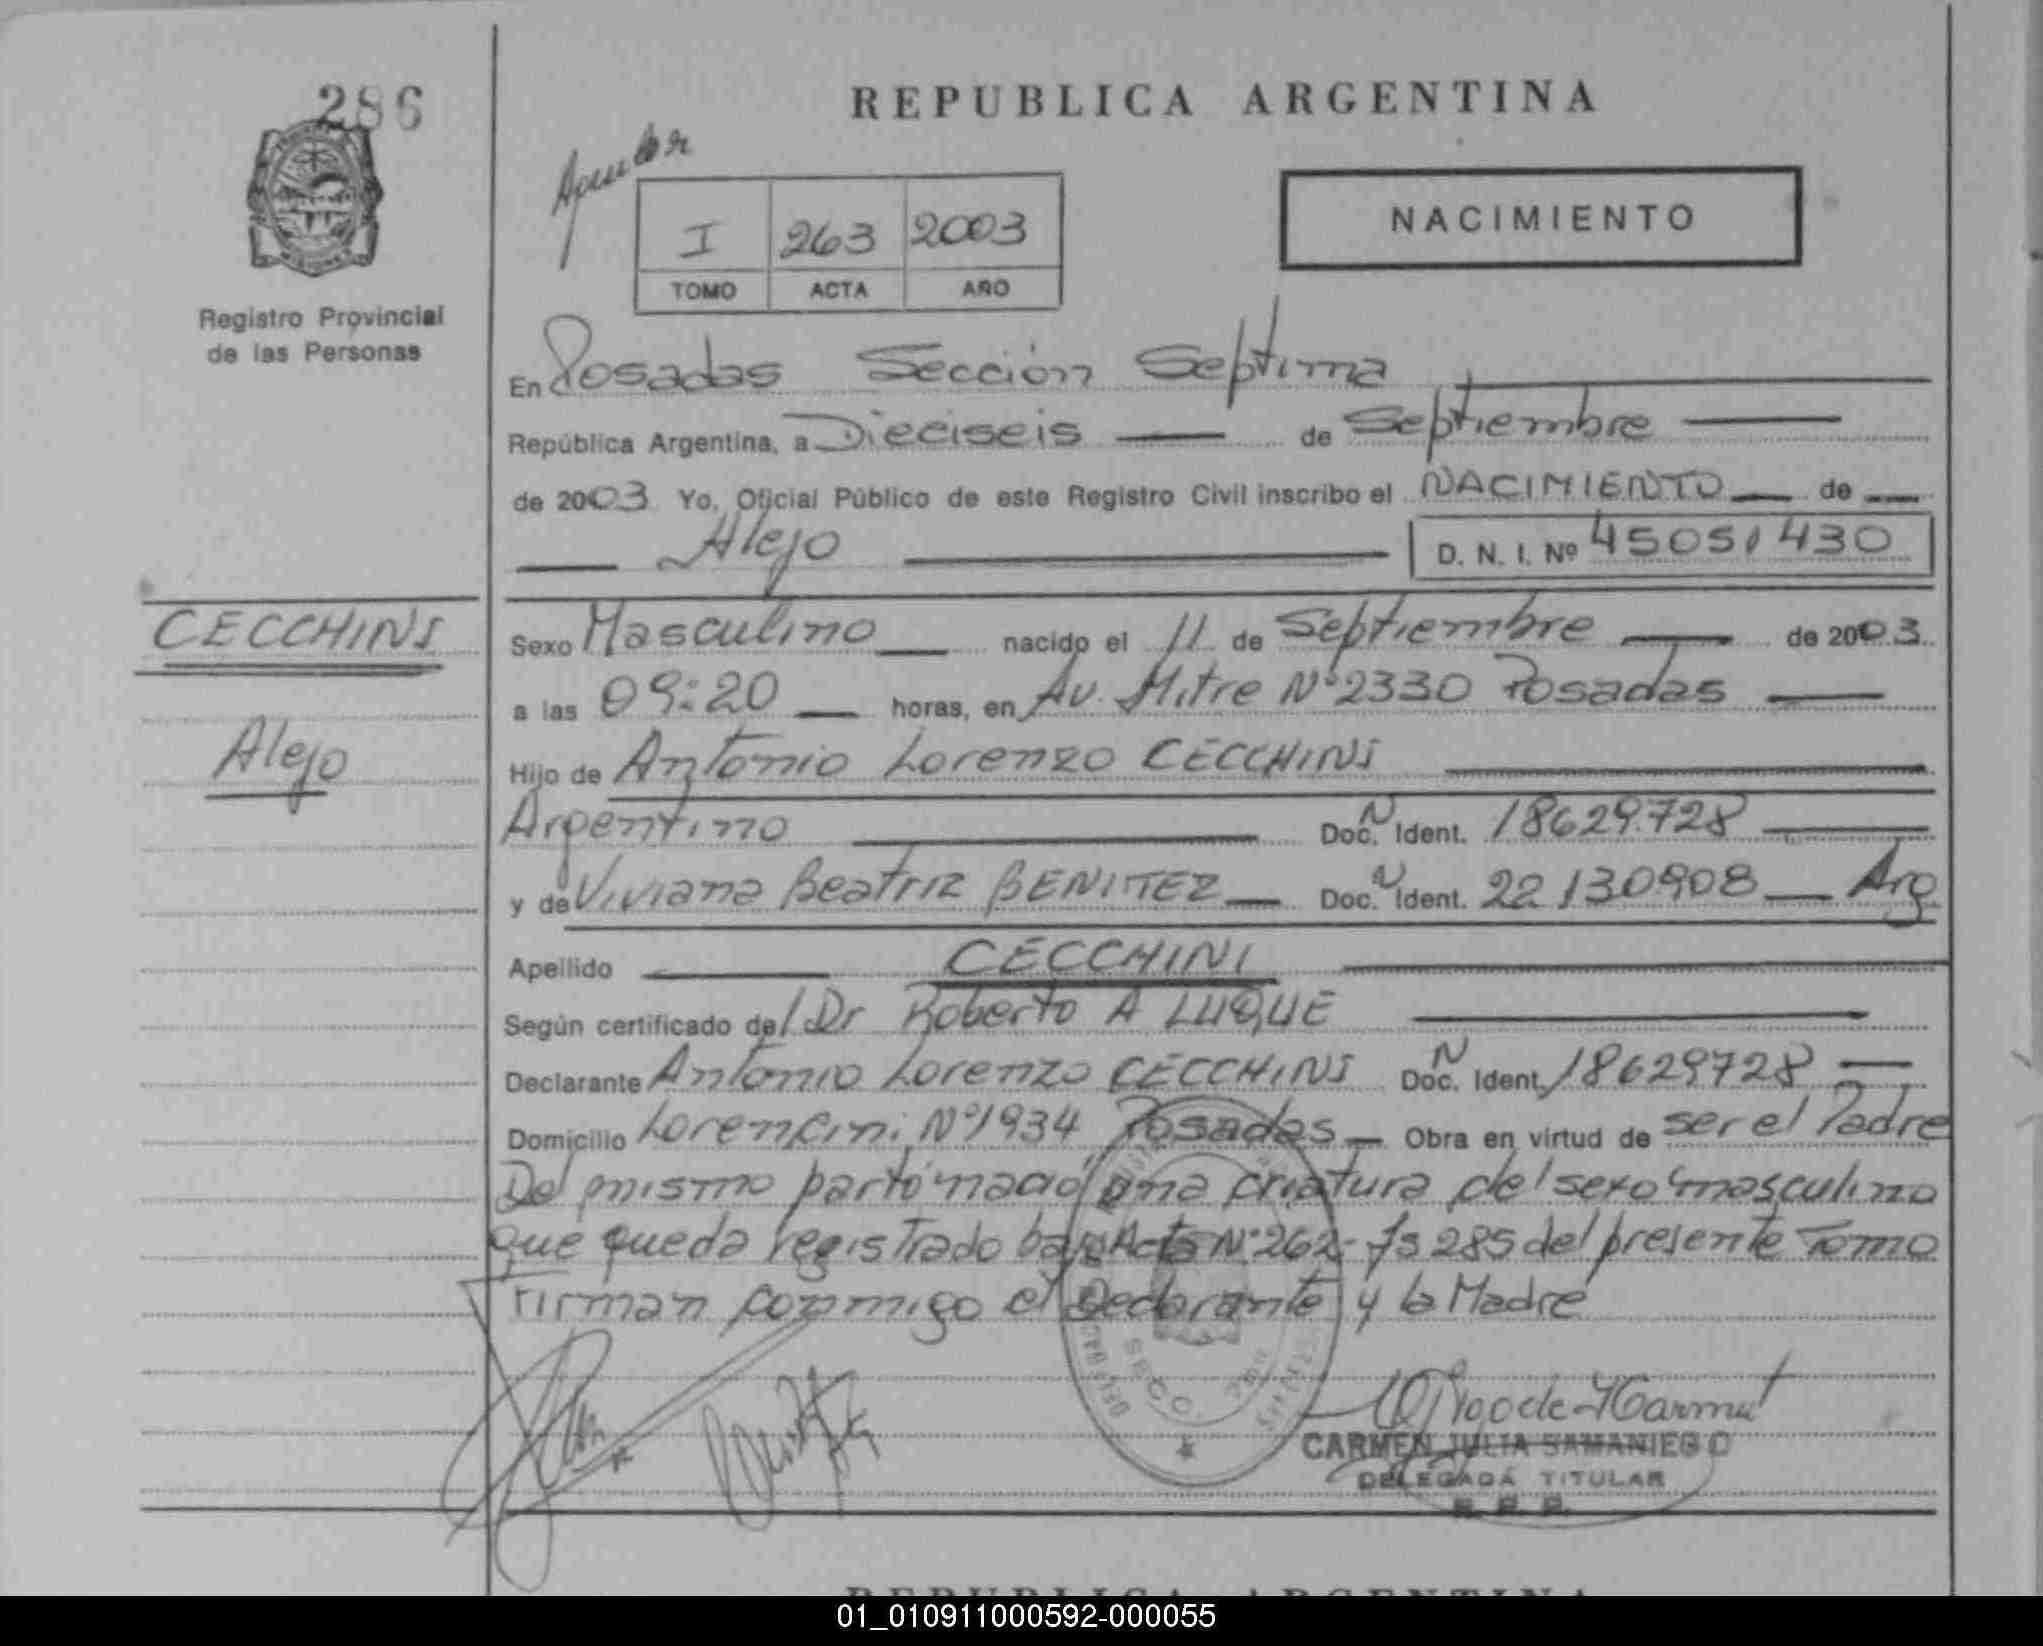 286
REPUBLICA ARGENTINA
I 263 2003
TOMO ACTA AÑO
NACIMIENTO
Registro Provincial
de las Personas
En Posadas Sección Septima
República Argentina, a Dieciseis de Septiembre
de 2003 Yo, Oficial Público de este Registro Civil inscribo el NACIMIENTO de
Alejo D. N. I. Nº 45051430
CECCHINI
Alejo
Sexo Masculino nacido el 11 de Septiembre de 2003
a las 09:20 horas, en Av. Mitre Nº 2330 Posadas
Hijo de Antonio Lorenzo CECCHINI
Argentino Doc. N Ident. 18629728
y de Viviana Beatriz BENITEZ Doc. N Ident. 22130908 Arg
Apellido CECCHINI
Según certificado del Dr Roberto A LUQUE
Declarante Antonio Lorenzo CECCHINI Doc. N Ident. 18629728
Domicilio Lorencini Nº 1934 Posadas Obra en virtud de ser el Padre
Del mismo parto nació una criatura del sexo masculino
que queda registrado bajo Acta Nº 262 - fs 285 del presente Tomo
Firman conmigo el Declarante y la Madre
CARMEN JULIA SAMANIEGO
DELEGADA TITULAR
R. P. P.
REPUBLICA ARGENTINA
01_010911000592-000055